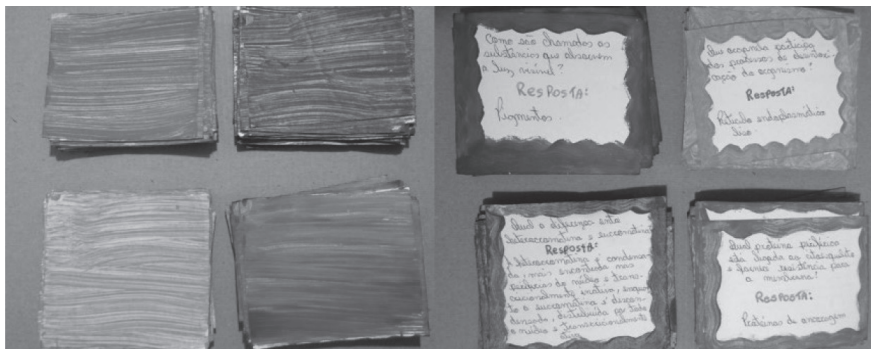 Como são chamados as
substâncias que absorvem
a luz visível?
RESPOSTA:
Pigmentos.
Que organela participa
nos processos de desintoxi-
cação do organismo?
RESPOSTA:
Retículo endoplasmático
liso.
Qual a diferença entre
heterocromatina e eucromatina?
RESPOSTA:
A heterocromatina é condensa-
da, mais encontrada nas
periferias do núcleo e trans-
cricionalmente inativa, enquan-
to a eucromatina é descon-
densada, distribuída por todo
o núcleo e transcricionalmente
Qual proteína periférica
está ligada ao citoesqueleto
e fornece resistência para
a membrana?
RESPOSTA:
Proteínas de ancoragem